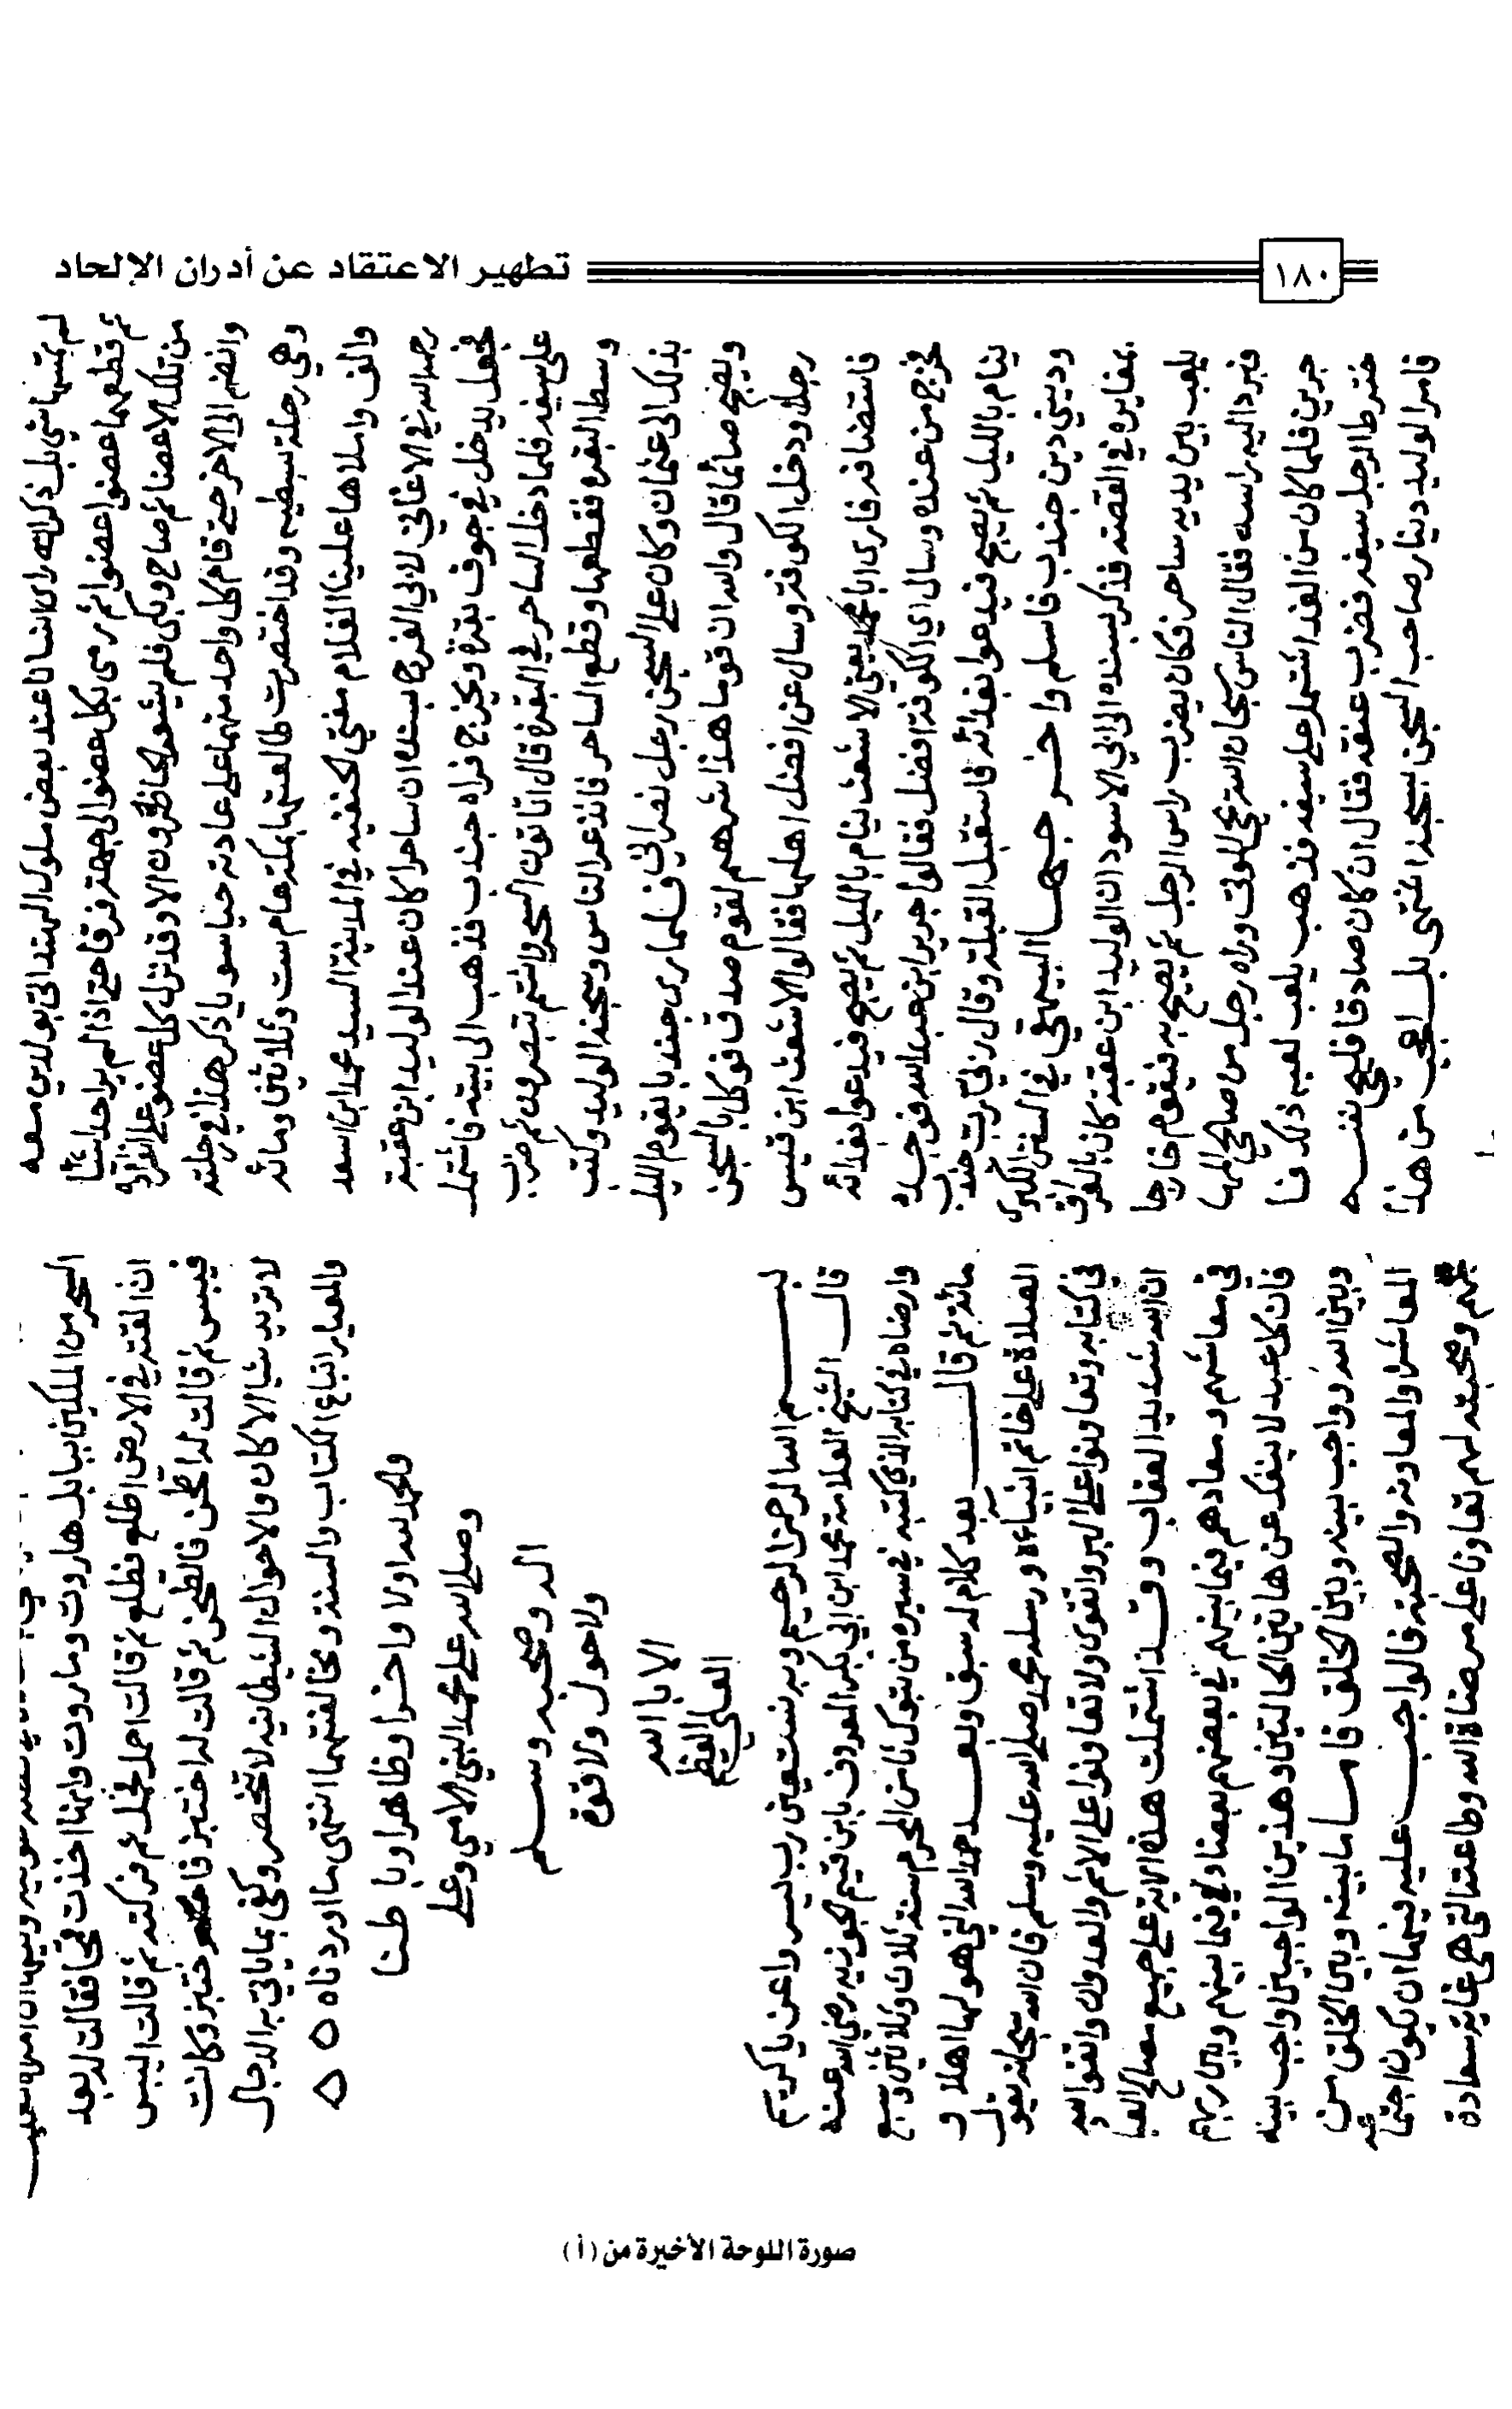 ١٨٠
تطهير الاعتقاد عن أدران الإلحاد
لم يمتهنا شي بل ذكر انه راى انسانا عند بعض ملوك الهند اتى بولدين معه
ثم قطعهما عضوا عضوا ثم رمى بكل عضو الى جهة فرقا حتى اذا لم ير احد شيئا
من تلك الاعضا ثم صاح وبكى فلم يشعر الحاضرون الا وقد نزل كل عضو على انفراده
وانضم الى الاخر حتى قام كل واحد منهما على عادته حيا سويا ذكر هذا في رحلته
وهي رحلة بسيطه وقد اختصرت طالعتها بمكة عام ست وثلاثين ومائه
والف واملاها علينا العلام مفتي الحنفيه في المدينة السيد محمد ابن اسعد
رحمه الله في الاغاني لابي الفرج بسنده ان ساحرا كان عند الوليد ابن عقبة
فجعل يدخل في جوف بقرة ويخرج فراه جندب فذهب الى بيته فاشتمل
على سيفه فلما دخل الساحر في البقره قال اتاتون السحر وانتم تبصرون ثم ضرب
وسط البقره فقطعها وقطع الساحر فانذعر الناس وسجنه الوليد وكتب
بذلك الى عثمان وكان على السجن رجل نصراني فلما راى جندبا يقوم الليل
ويصبح صائما قال والله ان قوما هذا شرهم لقوم صدق فوكل بالسجن
رجلا ودخل الكوفة وسال عن افضل اهلها فقالوا الاشعث ابن قيس
فاستضافه فراى ابا محمد يعني الاشعث ينام بالليل ثم يصبح فيدعوا بغدائه
فخرج من عنده وسال اي اهل الكوفة افضل فقالوا جرير ابن عبد الله فوجده
ينام بالليل ثم يصبح فيدعوا بغدائه فاستقبل القبلة وقال ربي رب جندب
وديني دين جندب فاسلم واخرجها البيهقي في السنن الكبرى
بمغايرة في القصة فذكر بسنده الى ابي الاسود ان الوليد ابن عقبة كان بالعراق
يلعب بين يديه ساحر فكان يضرب راس الرجل ثم يصيح به فيقوم خارجا
فيرد اليه راسه فقال الناس سبحان الله يحي الموتى وراه رجل من صالحي المهاجرين
فلما كان من الغد اشتمل على سيفه فذهب يلعب لعبه ذلك فاخترط
الرجل سيفه فضرب عنقه فقال ان كان صادقا فليحي نفسه
فامر الوليد دينار صاحب السجن بسجنه انتهى بل اعجب من هذا
السحر من الملكين ببابل هاروت وماروت وانها اخذت قمحا فقالت له بعد
ان القته في الارض اطلع فطلع ثم قالت احمل فحمل ثم فركته ثم قالت ايبس
فيبس ثم قالت له اطحن فاطحن ثم قالت له اختبز فاختبز وكانت
لا تريد شيا الا كان والاحوال الشيطانيه لا تنحصر وكفى بما ياتي به الدجال
والمعيار اتباع الكتاب والسنة ومخالفتهما انتهى ما اوردناه
والحمد لله اولا واخرا وظاهرا وباطنا
وصلى الله على محمد النبي الامي وعلى
اله وصحبه وسلم
ولا حول ولا قوة
الا بالله
العلي
العظيم
بسم الله الرحمن الرحيم وبه نستعين رب يسر واعن يا كريم
قال الشيخ العلامة محمد ابن ابي بكر المعروف بابن قيم الجوزيه رضي الله عنه
وارضاه في كتابه الذي كتبه في سيره من تبوك ثامن المحرم سنة ثلاث وثلاثين وسبع
مائة ثم قال بعد كلام له سبق وبعد حمد الله التي هو لها اهل و
الصلاة على خاتم انبيائه ورسله محمد صلى الله عليه وسلم فان الله سبحانه يقول
في كتابه وتعاونوا على البر والتقوى ولا تعاونوا على الاثم والعدوان واتقوا الله
ان الله شديد العقاب وقد اشتملت هذه الاية على جميع مصالح العباد
في معاشهم ومعادهم فيما بينهم في بعضهم بعضا وفيما بينهم وبين ربهم
فان كل عبد لا ينفك عن هاتين الحالتين وهذين الواجبين واجب بينه
وبين الله وواجب بينه وبين الخلق فاما ما بينه وبين الخلق من
المعاشرة والمعاونه والصحبة فالواجب عليه فيها ان يكون اجتماعه
بهم وصحبته لهم تعاونا على مرضاة الله وطاعته التي هي غاية سعادة
صورة اللوحة الأخيرة من (أ)